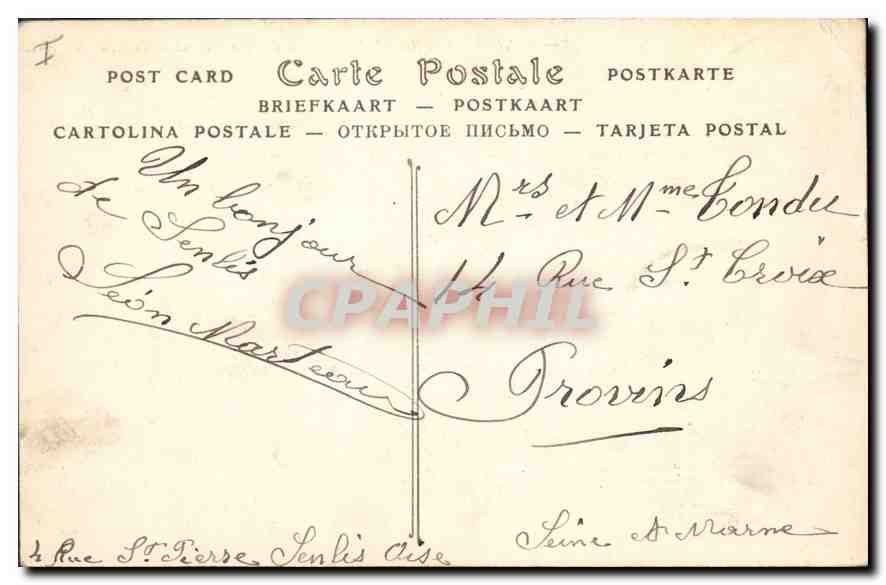 I
POST CARD Carte Postale POSTKARTE
BRIEFKAART — POSTKAART
CARTOLINA POSTALE — ОТКРЫТОЕ ПИСЬМО — TARJETA POSTAL
Un bonjour
de Senlis
Léon Marteau
Mrs et Mme Tondu
14 Rue St Croix
Provins
Seine & Marne
4 Rue St Pierre Senlis Oise
CPAPHIL